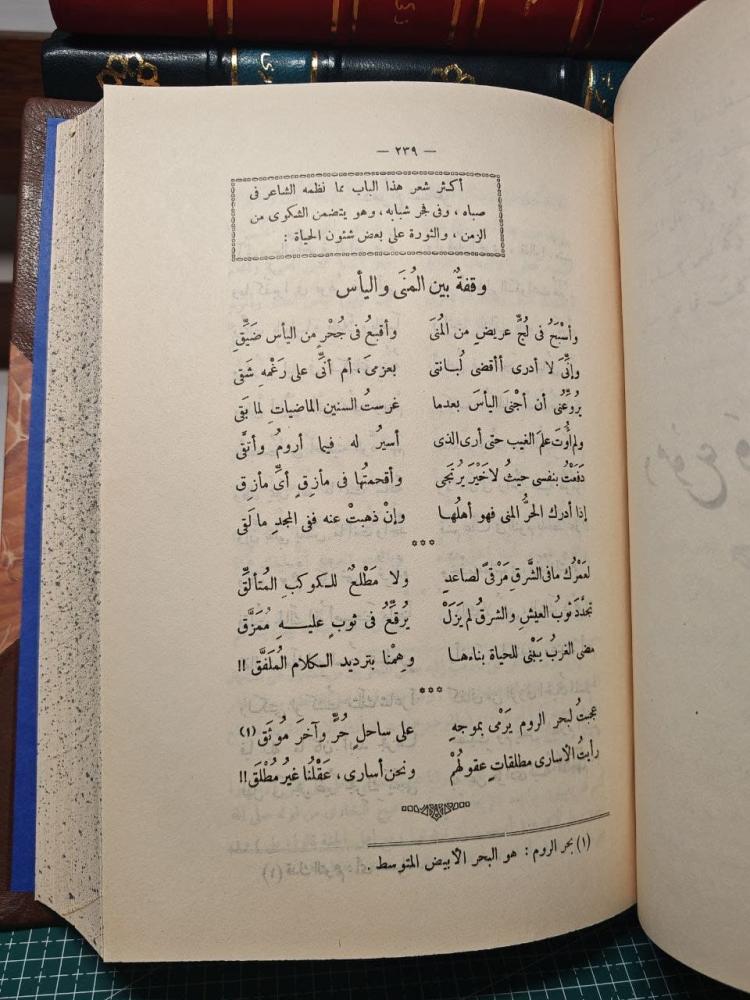 — ٢٣٩ —
أكثر شعر هذا الباب مما نظمه الشاعر فى
صباه ، وفى فجر شبابه ، وهو يتضمن الشكوى من
الزمن ، والثورة على بعض شئون الحياة :
وقفةٌ بين المُنَى واليأس
وأسْبَحُ فى لُجٍّ عريضٍ من المُنَى وأقبعُ فى جُحْرٍ من اليأس ضَيِّقِ
وإنِّىَ لا أدرى أأقضى لُبانتى بعزمىَ ، أم أنِّى على رَغْمِهِ شَقى
يُروِّعُنى أن أجْنىَ اليأسَ بعدما غرستُ السنين الماضيات لما بَقى
ولم أُوتَ علمَ الغيب حتى أرى الذى أسيرُ له فيما أرومُ وأتقى
دَفَعْتُ بنفسى حيثُ لا خَيْرَ يُرتجى وأقحمتُها فى مأزِقٍ أىِّ مأزِقِ
إذا أدرك الحرُّ المنى فهو أهلُها وإنْ ذهبتْ عنه ففى المجدِ ما لَقى
***
لعَمْرُك ما فى الشَّرقِ مَرْقىً لصاعدٍ ولا مَطْلعٌ للكوكبِ المُتألقِّ
تجدَّدَ ثوبُ العيشِ والشرقُ لم يَزَلْ يُرقِّعُ فى ثوبٍ عليـهِ مُمَزَّقِ
مضى الغربُ يَبْنى للحياة بناءهـا وهِمْنا بترديد الكلام المُلَفَّقِ !!
***
عجبتُ لبحر الروم يَرْمى بموجهِ على ساحلٍ حُرٍّ وآخرَ مُوثَقِ (١)
رأيتُ الأسارى مطلقاتٍ عقولُهُمْ ونحن أسارى ، عَقْلُنا غيرُ مُطْلَقِ !!
(١) بحر الروم : هو البحر الأبيض المتوسط .